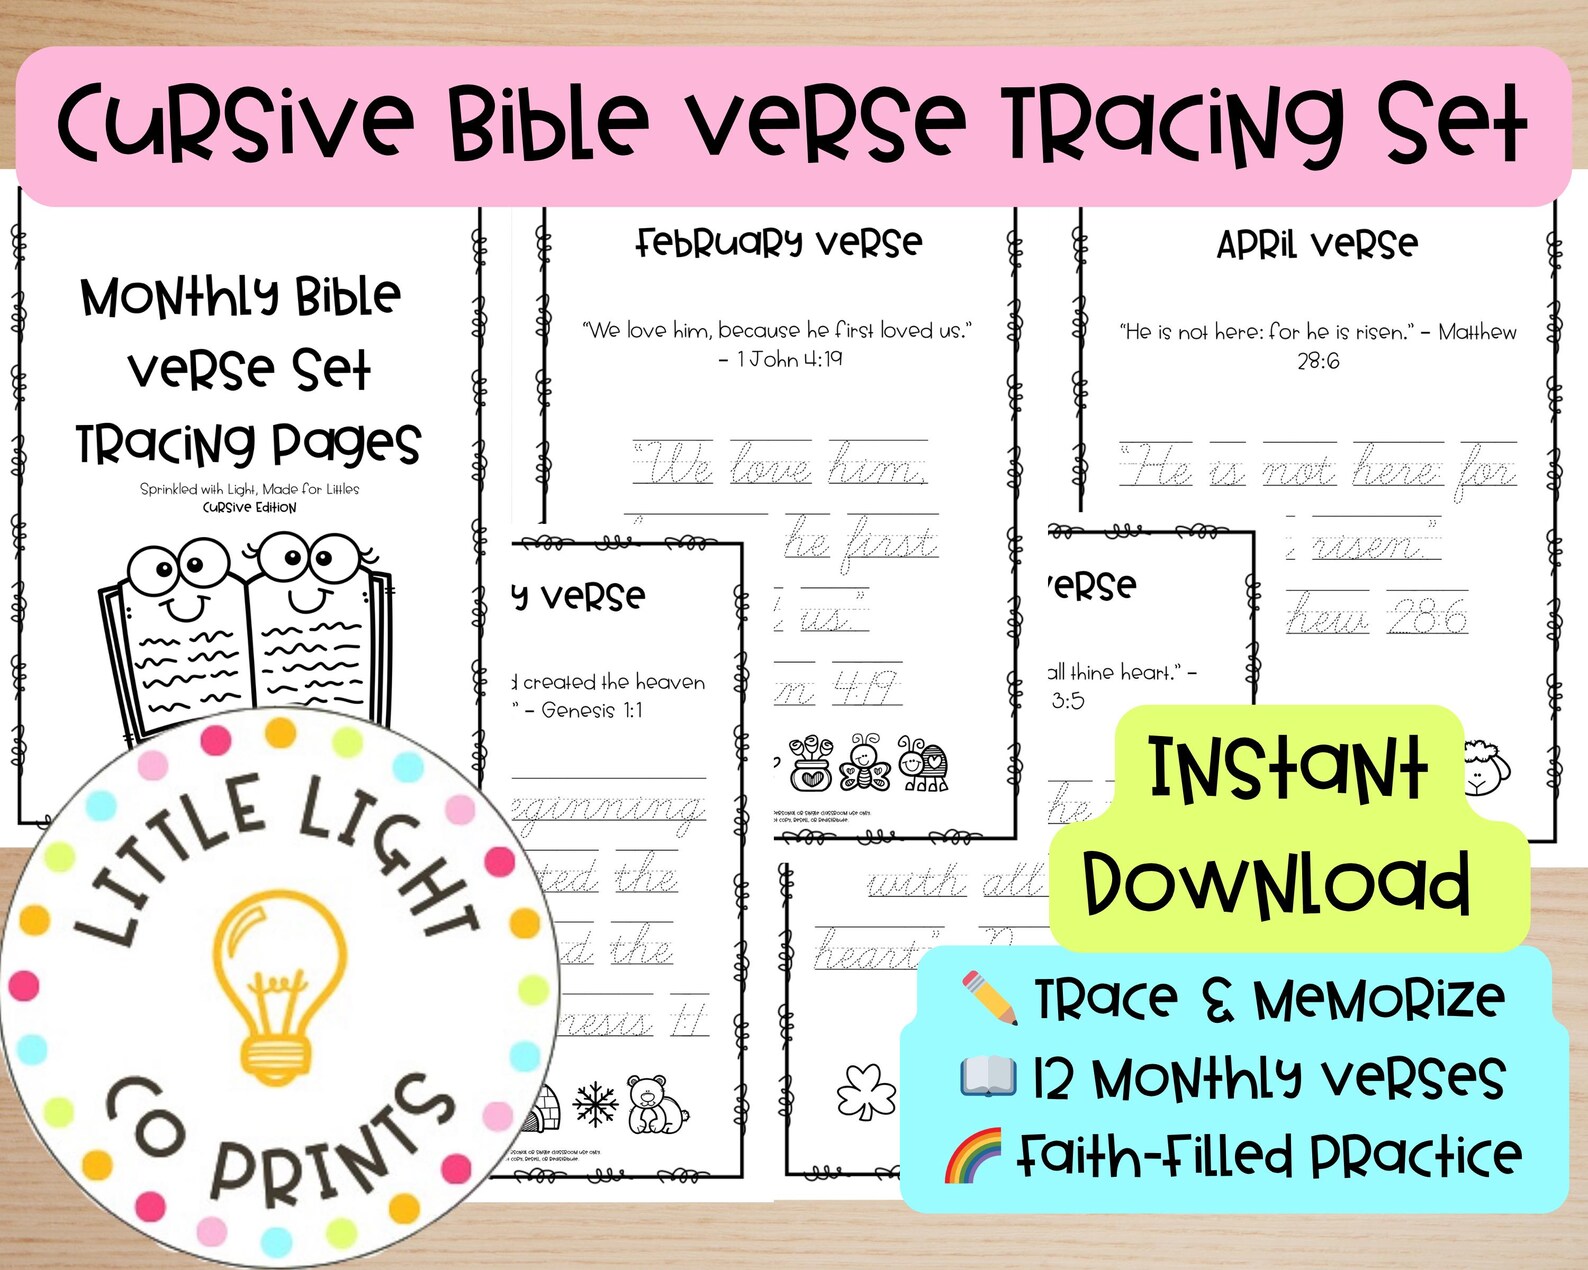 Cursive Bible Verse Tracing Set
Monthly Bible
Verse Set
Tracing Pages
Sprinkled with Light, Made for Littles
Cursive Edition
February Verse
"We love him, because he first loved us."
- 1 John 4:19
"We love him,
he first
us."
4:19
personal or single classroom use only.
copy, resell, or redistribute.
April Verse
"He is not here: for he is risen." - Matthew
28:6
"He is not here: for
risen."
hew 28:6
y Verse
d created the heaven
" - Genesis 1:1
eginning
ted the
d the
nesis 1:1
personal or single classroom use only.
copy, resell, or redistribute.
Verse
all thine heart." -
3:5
the
with all
heart."
LITTLE LIGHT
CO PRINTS
Instant
Download
Trace & Memorize
12 Monthly Verses
Faith-Filled Practice